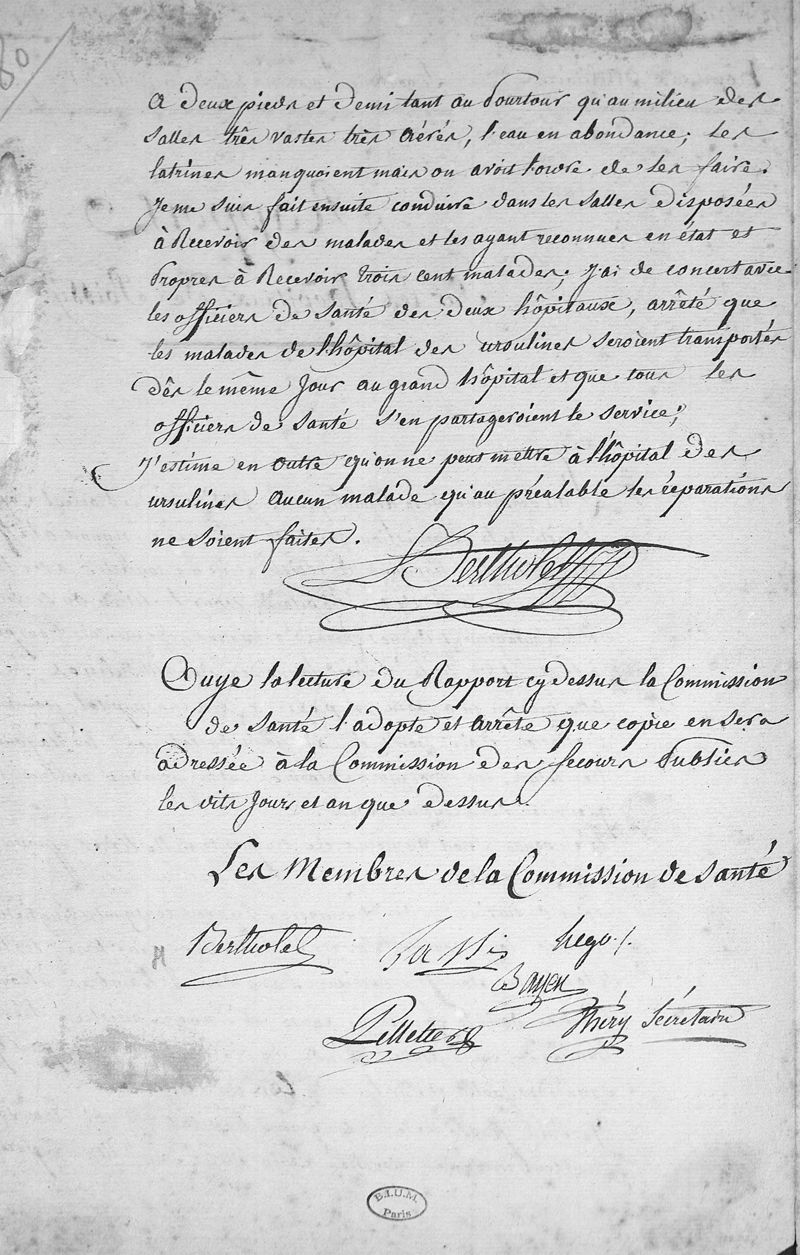 80
a deux pieds et demi tant au Pourtour qu'au milieu des
salles très vastes très aérés, l'eau en abondance; les
latrines manquoient mais on avoit l'ordre de les faire.
Je me suis fait ensuite conduire dans les salles disposées
à Recevoir des malades et les ayant reconnues en état et
Propres à Recevoir trois cent malades; J'ai de concert avec
les officiers de santé des deux hôpitaux, arrêté que
les malades de l'hôpital des ursulines seroient transportés
dès le même Jour au grand hôpital et que tous les
officiers de santé s'en partageroient le service;
J'estime en outre qu'on ne peut mettre à l'hôpital des
ursulines aucun malade qu'au préalable les réparations
ne soient faites.
Berthollet
Ouye la lecture du Rapport cy dessus la Commission
de santé l'adopte et arrête que copie en sera
adressée à la Commission des secours Publics
les dits Jours et an que dessus.
Les Membres de la Commission de santé
Bertholet
hego
Bayen
Pelletier
Théry Sécretaire
B.I.U.M.
Paris